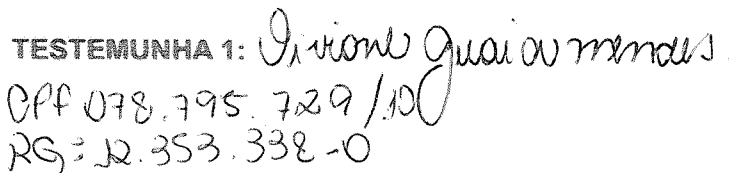 TESTEMUNHA 1: Viviane Guaia Mendes
CPF 078.795.729/10
RG: 12.353.338-0